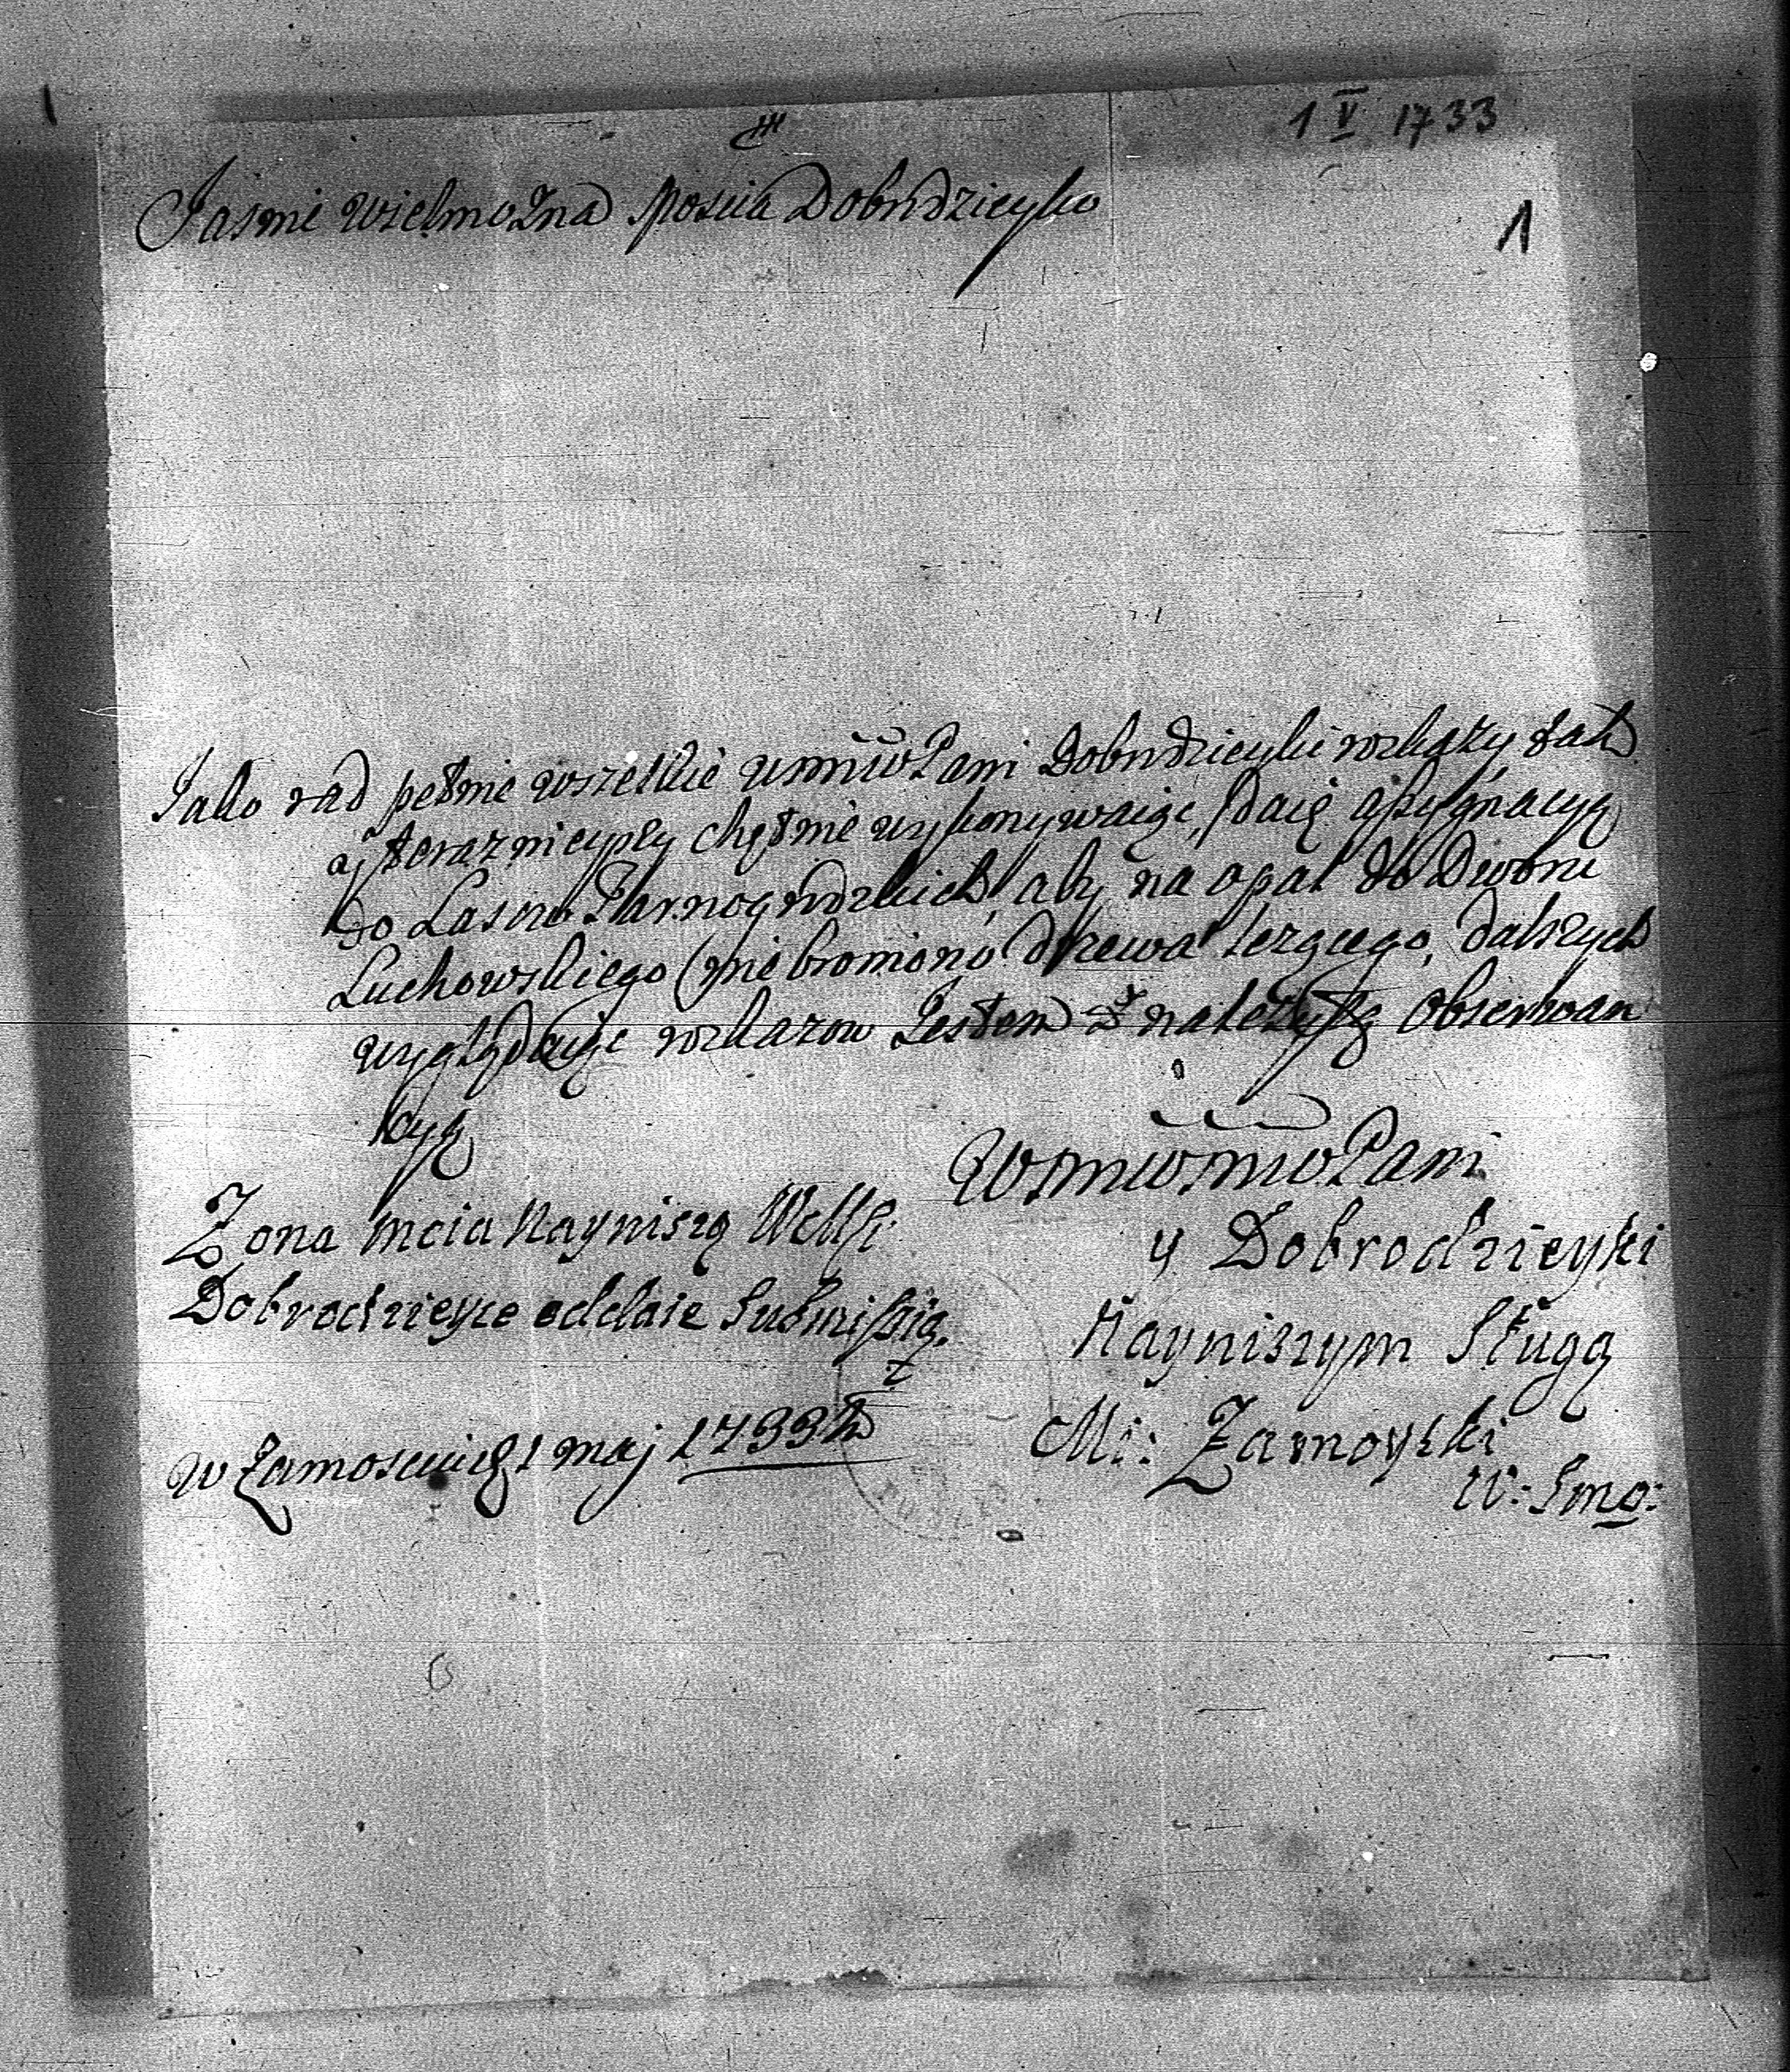 1 V 1733
Jasnie wielmozna Moscia Dobrodzieyko
1
Jako rad pełnie wszelkie WMMWPani Dobrodzieyki roskazy tak
y teraznieyszy chętnie wykonywaiąc, daię assygnacyą
do Lasow Tarnogrodzkich, aby na opał do Dworu
Luchowskiego nie broniono drzewa lezącego, dalszych
wyglądaiąc roskazow Jestem z nalezytą obserwan
cyą
WMMWMWPani
y Dobrodzieyki
Nayniszym Sługą
Mi: Zamoyski
W: Smo:
Zona moia Nayniszą
Dobrodzieyce oddaie Submissią.
w Zamosciu 1 maj 1733